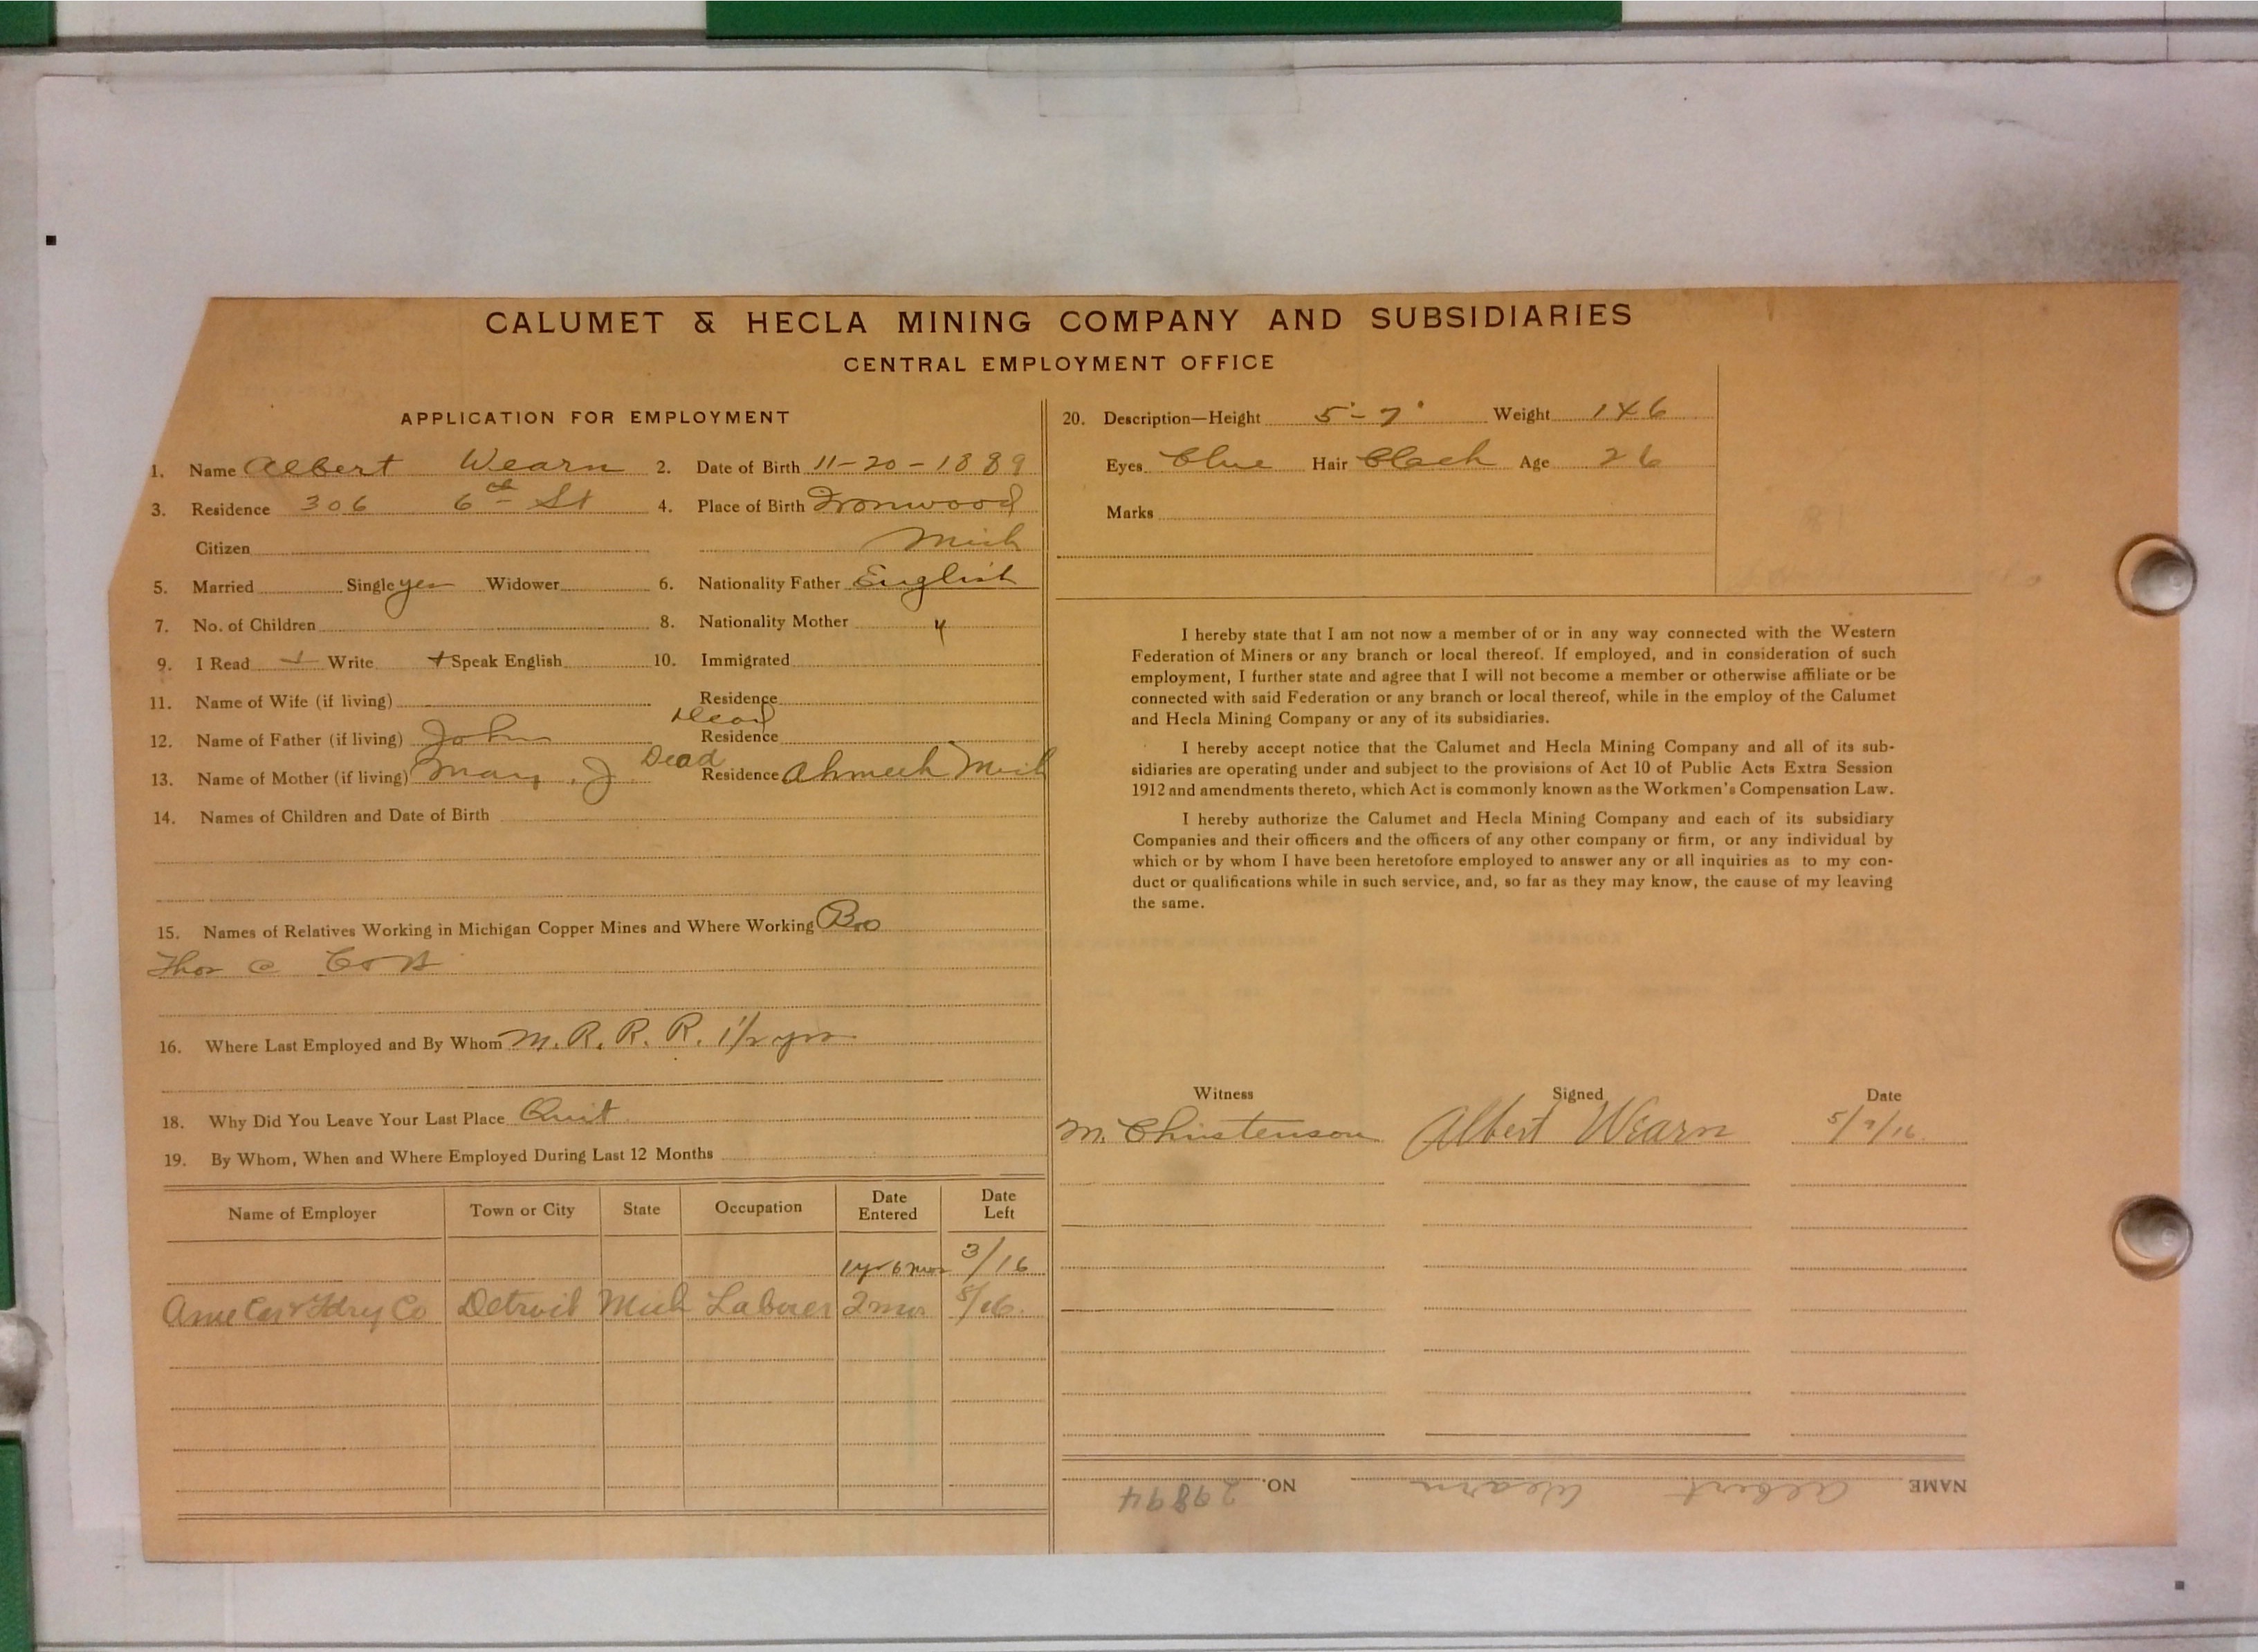 CALUMET & HECLA MINING COMPANY AND SUBSIDIARIES
CENTRAL EMPLOYMENT OFFICE
APPLICATION FOR EMPLOYMENT
1. Name Albert Wearn 2. Date of Birth 11-20-1889
3. Residence 306 6th St 4. Place of Birth Ironwood
Citizen Mich
5. Married Single yes Widower 6. Nationality Father English
7. No. of Children 8. Nationality Mother "
9. I Read + Write + Speak English 10. Immigrated
11. Name of Wife (if living) Residence
12. Name of Father (if living) John Dead Residence
13. Name of Mother (if living) Mary. J Dead Residence Ahmeek Mich
14. Names of Children and Date of Birth
15. Names of Relatives Working in Michigan Copper Mines and Where Working Bro
Thos C
16. Where Last Employed and By Whom M. R. R. R. 1 1/2 yrs
18. Why Did You Leave Your Last Place Quit
19. By Whom, When and Where Employed During Last 12 Months
Name of Employer Town or City State Occupation Date Entered Date Left
1 yr 6 mos 3/16
Ame Car & Fdry Co Detroit Mich Laborer 2 mos 5/16.
20. Description—Height 5'-7" Weight 146
Eyes Blue Hair Black Age 26
Marks
I hereby state that I am not now a member of or in any way connected with the Western
Federation of Miners or any branch or local thereof. If employed, and in consideration of such
employment, I further state and agree that I will not become a member or otherwise affiliate or be
connected with said Federation or any branch or local thereof, while in the employ of the Calumet
and Hecla Mining Company or any of its subsidiaries.
I hereby accept notice that the Calumet and Hecla Mining Company and all of its sub-
sidiaries are operating under and subject to the provisions of Act 10 of Public Acts Extra Session
1912 and amendments thereto, which Act is commonly known as the Workmen's Compensation Law.
I hereby authorize the Calumet and Hecla Mining Company and each of its subsidiary
Companies and their officers and the officers of any other company or firm, or any individual by
which or by whom I have been heretofore employed to answer any or all inquiries as to my con-
duct or qualifications while in such service, and, so far as they may know, the cause of my leaving
the same.
Witness Signed Date
M. Christenson Albert Wearn 5/9/16.
NAME Albert Wearn NO. 29894